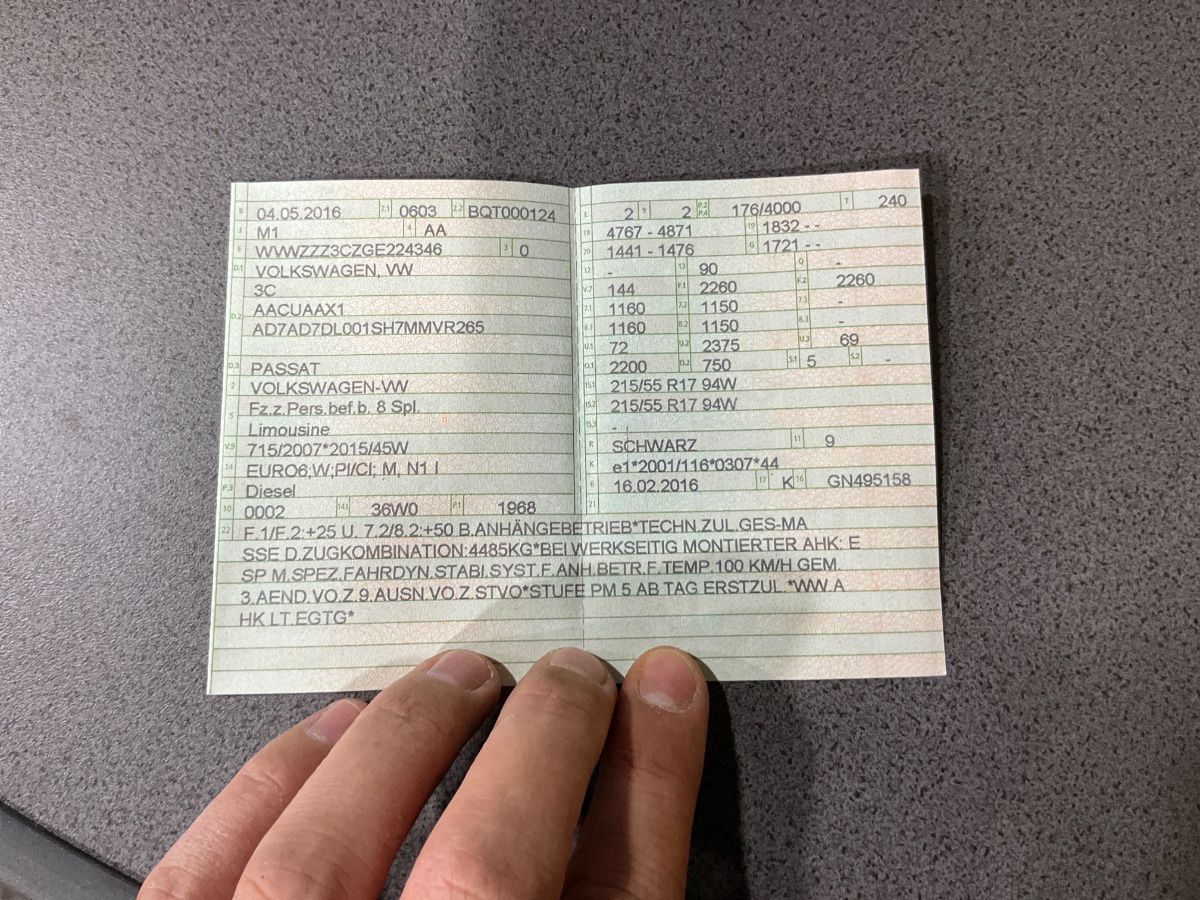 B 04.05.2016 2.1 0603 2.2 BQT000124
J M1 4 AA
E WVWZZZ3CZGE224346 3 0
D.1 VOLKSWAGEN, VW
3C
D.2 AACUAAX1
AD7AD7DL001SH7MMVR265
D.3 PASSAT
2 VOLKSWAGEN-VW
5 Fz.z.Pers.bef.b. 8 Spl.
Limousine
V.9 715/2007*2015/45W
14 EURO6;W;PI/CI; M, N1 I
P.3 Diesel
10 0002 14.1 36W0 P.1 1968
L 2 9 2 P.2 P.4 176/4000 T 240
18 4767 - 4871 19 1832 - -
20 1441 - 1476 G 1721 - -
12 - 13 90 Q -
V.7 144 F.1 2260 F.2 2260
7.1 1160 7.2 1150 7.3 -
8.1 1160 8.2 1150 8.3 -
U.1 72 U.2 2375 U.3 69
O.1 2200 O.2 750 S.1 5 S.2 -
15.1 215/55 R17 94W
15.2 215/55 R17 94W
15.3 -
R SCHWARZ 11 9
K e1*2001/116*0307*44
6 16.02.2016 17 K 16 GN495158
21
22 F.1/F.2:+25 U. 7.2/8.2:+50 B.ANHÄNGEBETRIEB*TECHN.ZUL.GES-MA
SSE D.ZUGKOMBINATION:4485KG*BEI WERKSEITIG MONTIERTER AHK: E
SP M.SPEZ.FAHRDYN.STABI.SYST.F.ANH.BETR.F.TEMP.100 KM/H GEM.
3.AEND.VO.Z.9.AUSN.VO.Z.STVO*STUFE PM 5 AB TAG ERSTZUL.*WW.A
HK LT.EGTG*